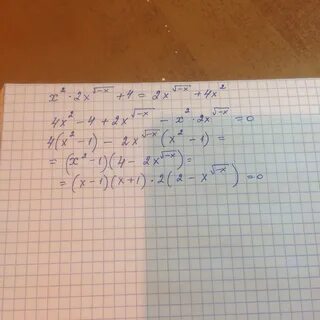 x² · 2x^√-x + 4 = 2x^√-x + 4x²
4x² - 4 + 2x^√-x - x² · 2x^√-x = 0
4(x² - 1) - 2x^√-x (x² - 1) =
= (x² - 1)(4 - 2x^√-x) =
= (x - 1)(x + 1) · 2(2 - x^√-x) = 0